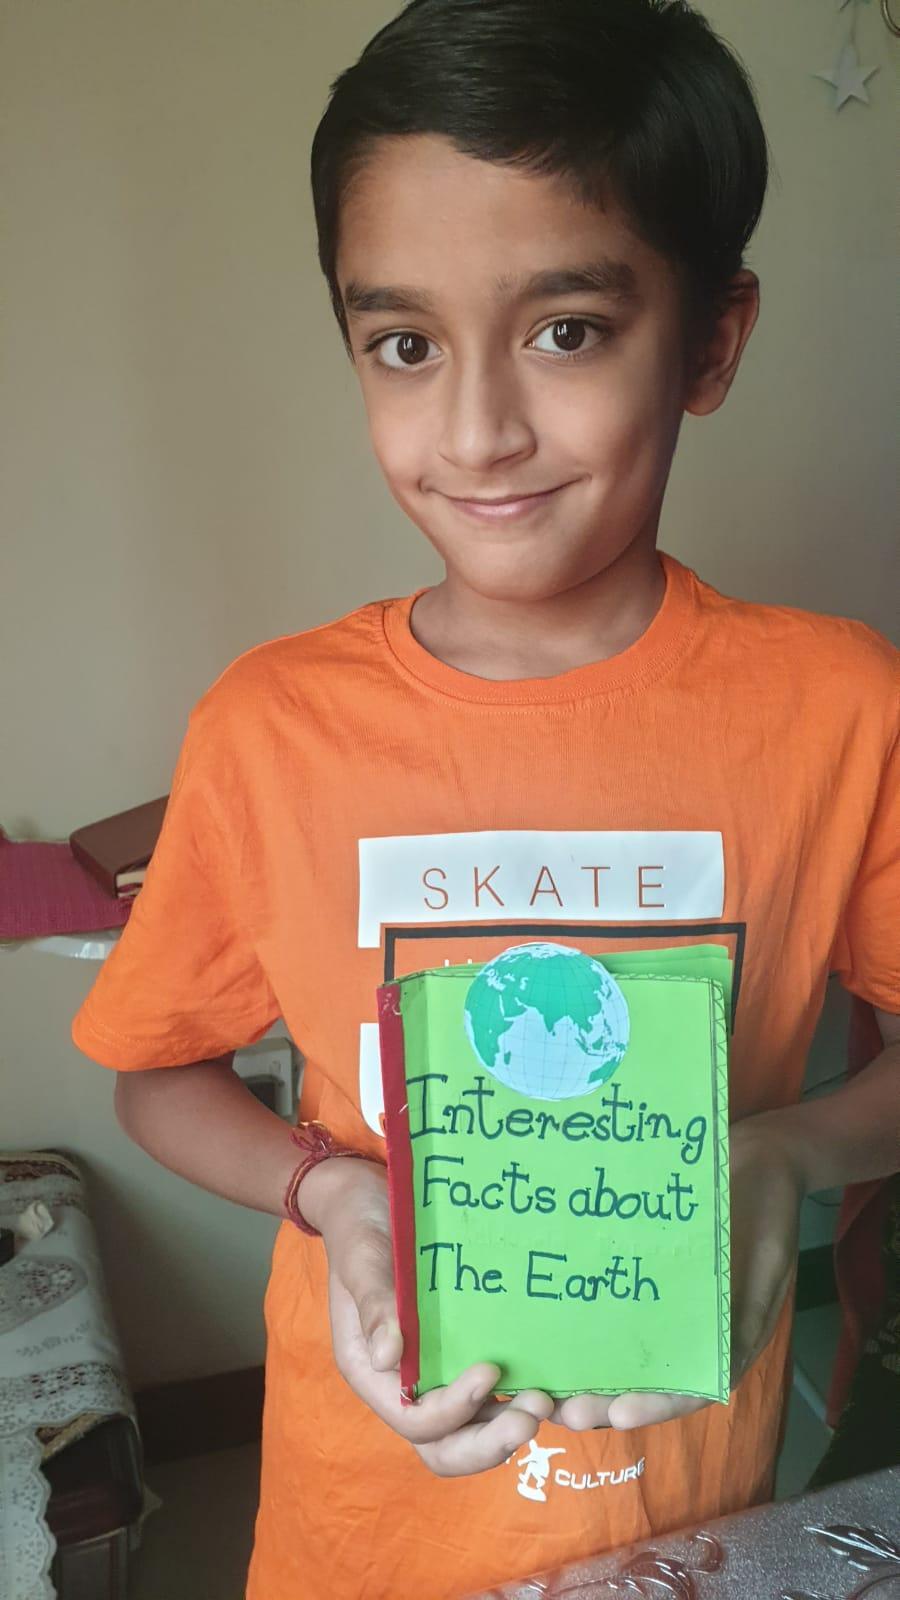 SKATE
Interesting
Facts about
The Earth
CULTURE